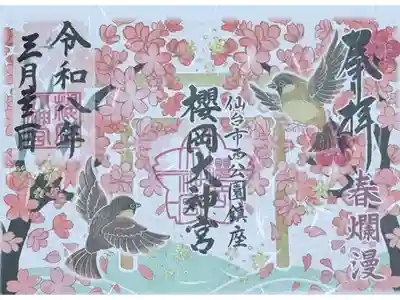 奉拝
春爛漫
仙台市西公園鎮座
櫻岡大神宮
令和八年
三月